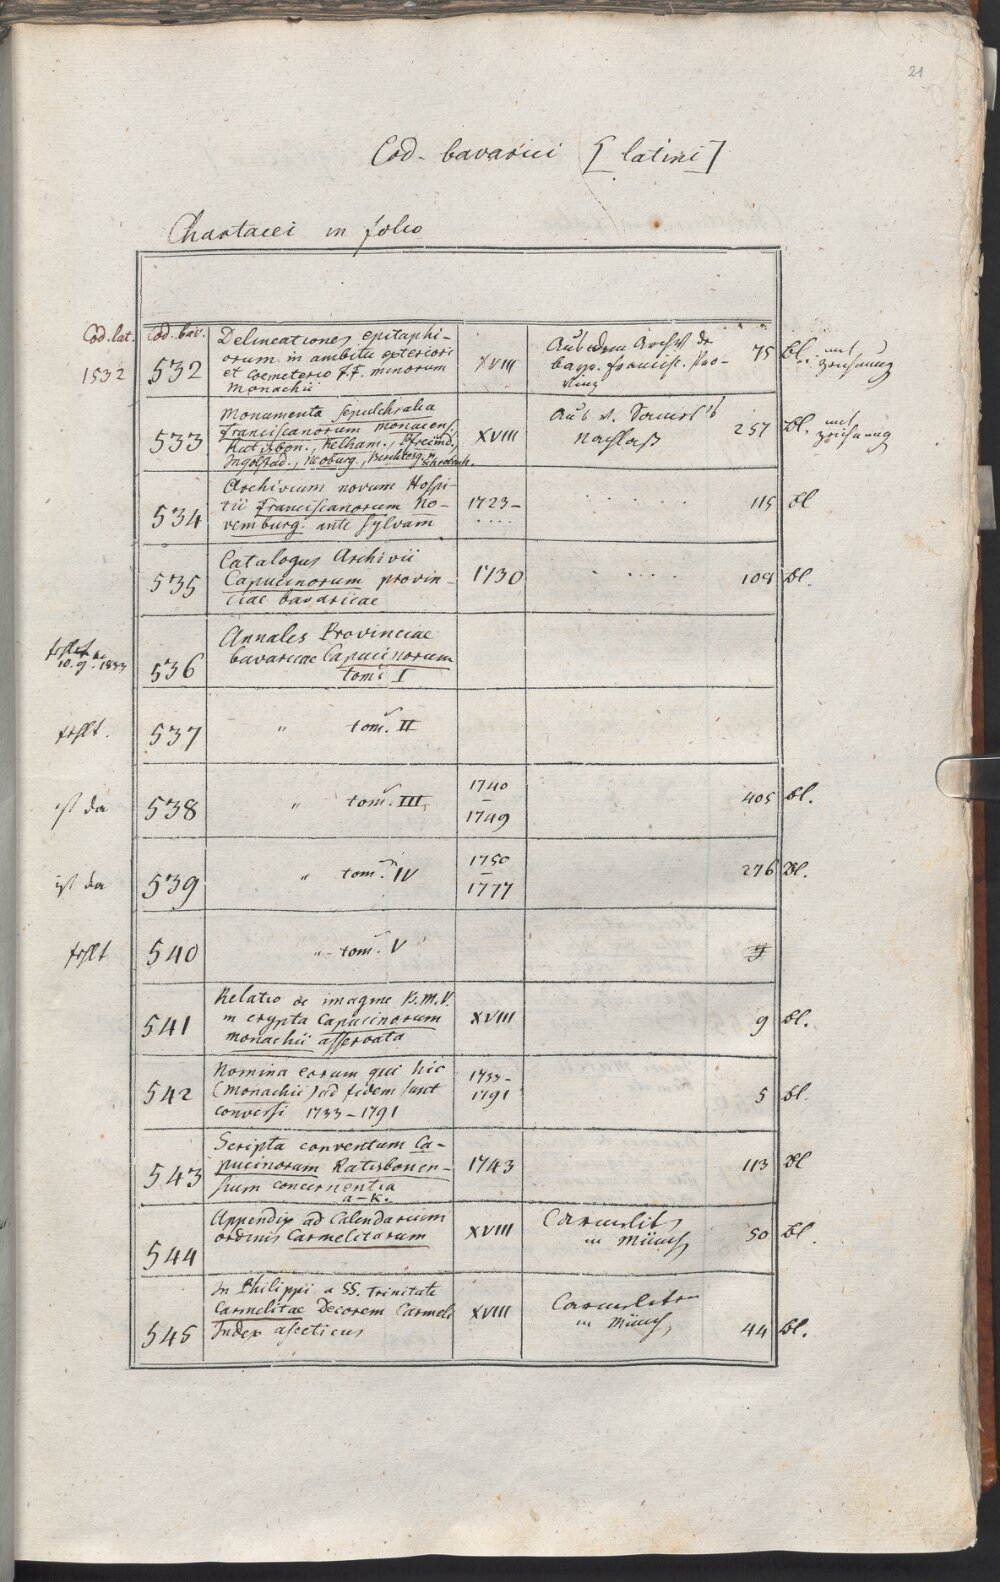 21
Cod. bavarici [latini]
Chartacei in folio
Cod. lat. Cod. bav.
1532 532 Delineationes epitaphi-
orum in ambitu exteriori
et Coemeterio F.F. minorum
Monachii
XVIII
Aus dem Archiv der
bayr. Francisk. Pro-
vinz
75 Bl. mit
Zeichnung
533 Monumenta sepulchralia
franciscanorum monacens.
Ratisbon., Kelham.,
Ingolstad., Neoburg.,
XVIII
Aus v.
Nachlaß
257 Bl. mit
Zeichnung
534 Archivium novum Hospi-
tii franciscanorum No-
vemburg. ante sylvam
1723-
....
115 Bl
535 Catalogus Archivii
Capucinorum provin-
ciae bavaricae
1730
108 Bl.
fehlt
10.9.1833
536 Annales Provinciae
bavaricae Capucinorum
tom: I
fehlt. 537 " tom. II
ist da 538 " tom. III
1740
–
1749
405 Bl.
ist da 539 " tom. IV
1750
–
1777
276 Bl.
fehlt 540 " tom. V
541 Relatio de imagine B.M.V.
in crypta Capucinorum
monachii asservata
XVIII
9 Bl.
542 Nomina eorum qui hic
(Monachii) ad fidem sunt
conversi 1733-1791
1733-
1791
5 Bl.
543 Scripta conventum Ca-
pucinorum Ratisbonen-
sium concernentia
a-k.
1743
113 Bl
544 Appendix ad Calendarium
ordinis Carmelitarum
XVIII
in Münch
50 Bl.
545 In Philippi a SS. Trinitate
Carmelitae Decorem Carmeli
Index asceticus
XVIII
Carmeliten
in Münch
44 Bl.